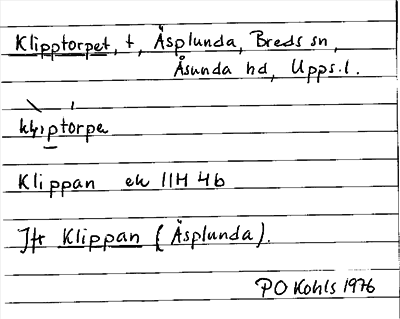 Klipptorpet, t, Äsplunda, Breds sn,
Åsunda hd, Upps.l.
Klippan ek 11H 4b
Jfr Klippan (Äsplunda).
PO Kohls 1976